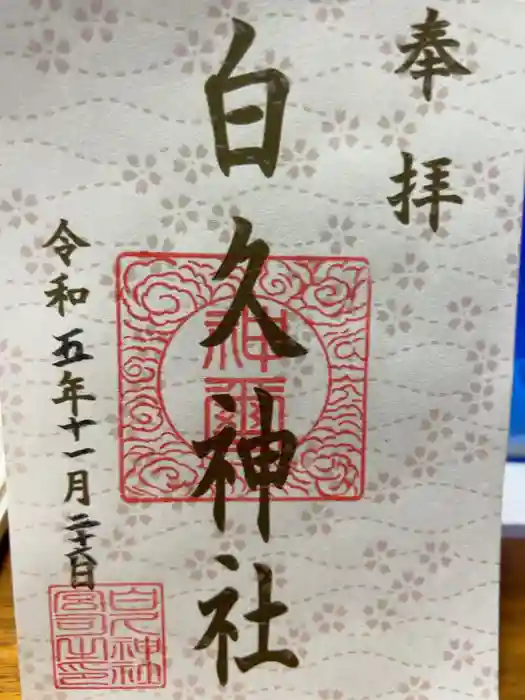 奉拝
白久神社
神璽
令和五年十一月二十六日
白久神社宮司之印